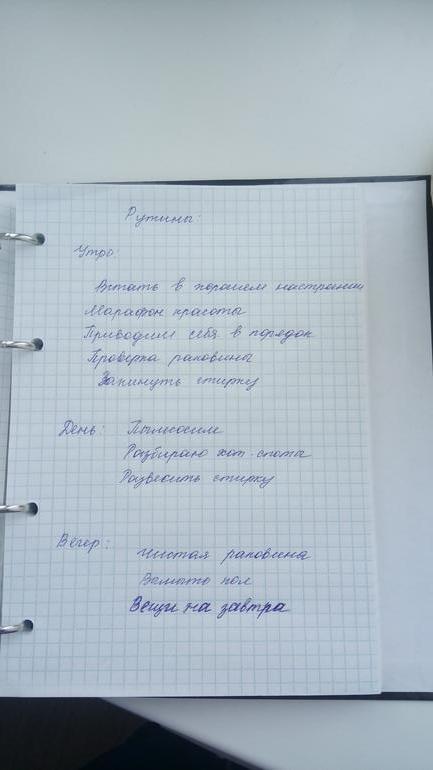 Рутины:
Утро:
Встать в хорошем настроении
Марафон красоты
Приводим себя в порядок
Проверка раковины
Закинуть стирку
День: Пылесосим
Разбираю хот-споты
Развесить стирку
Вечер:
Чистая раковина
пол
Вещи на завтра